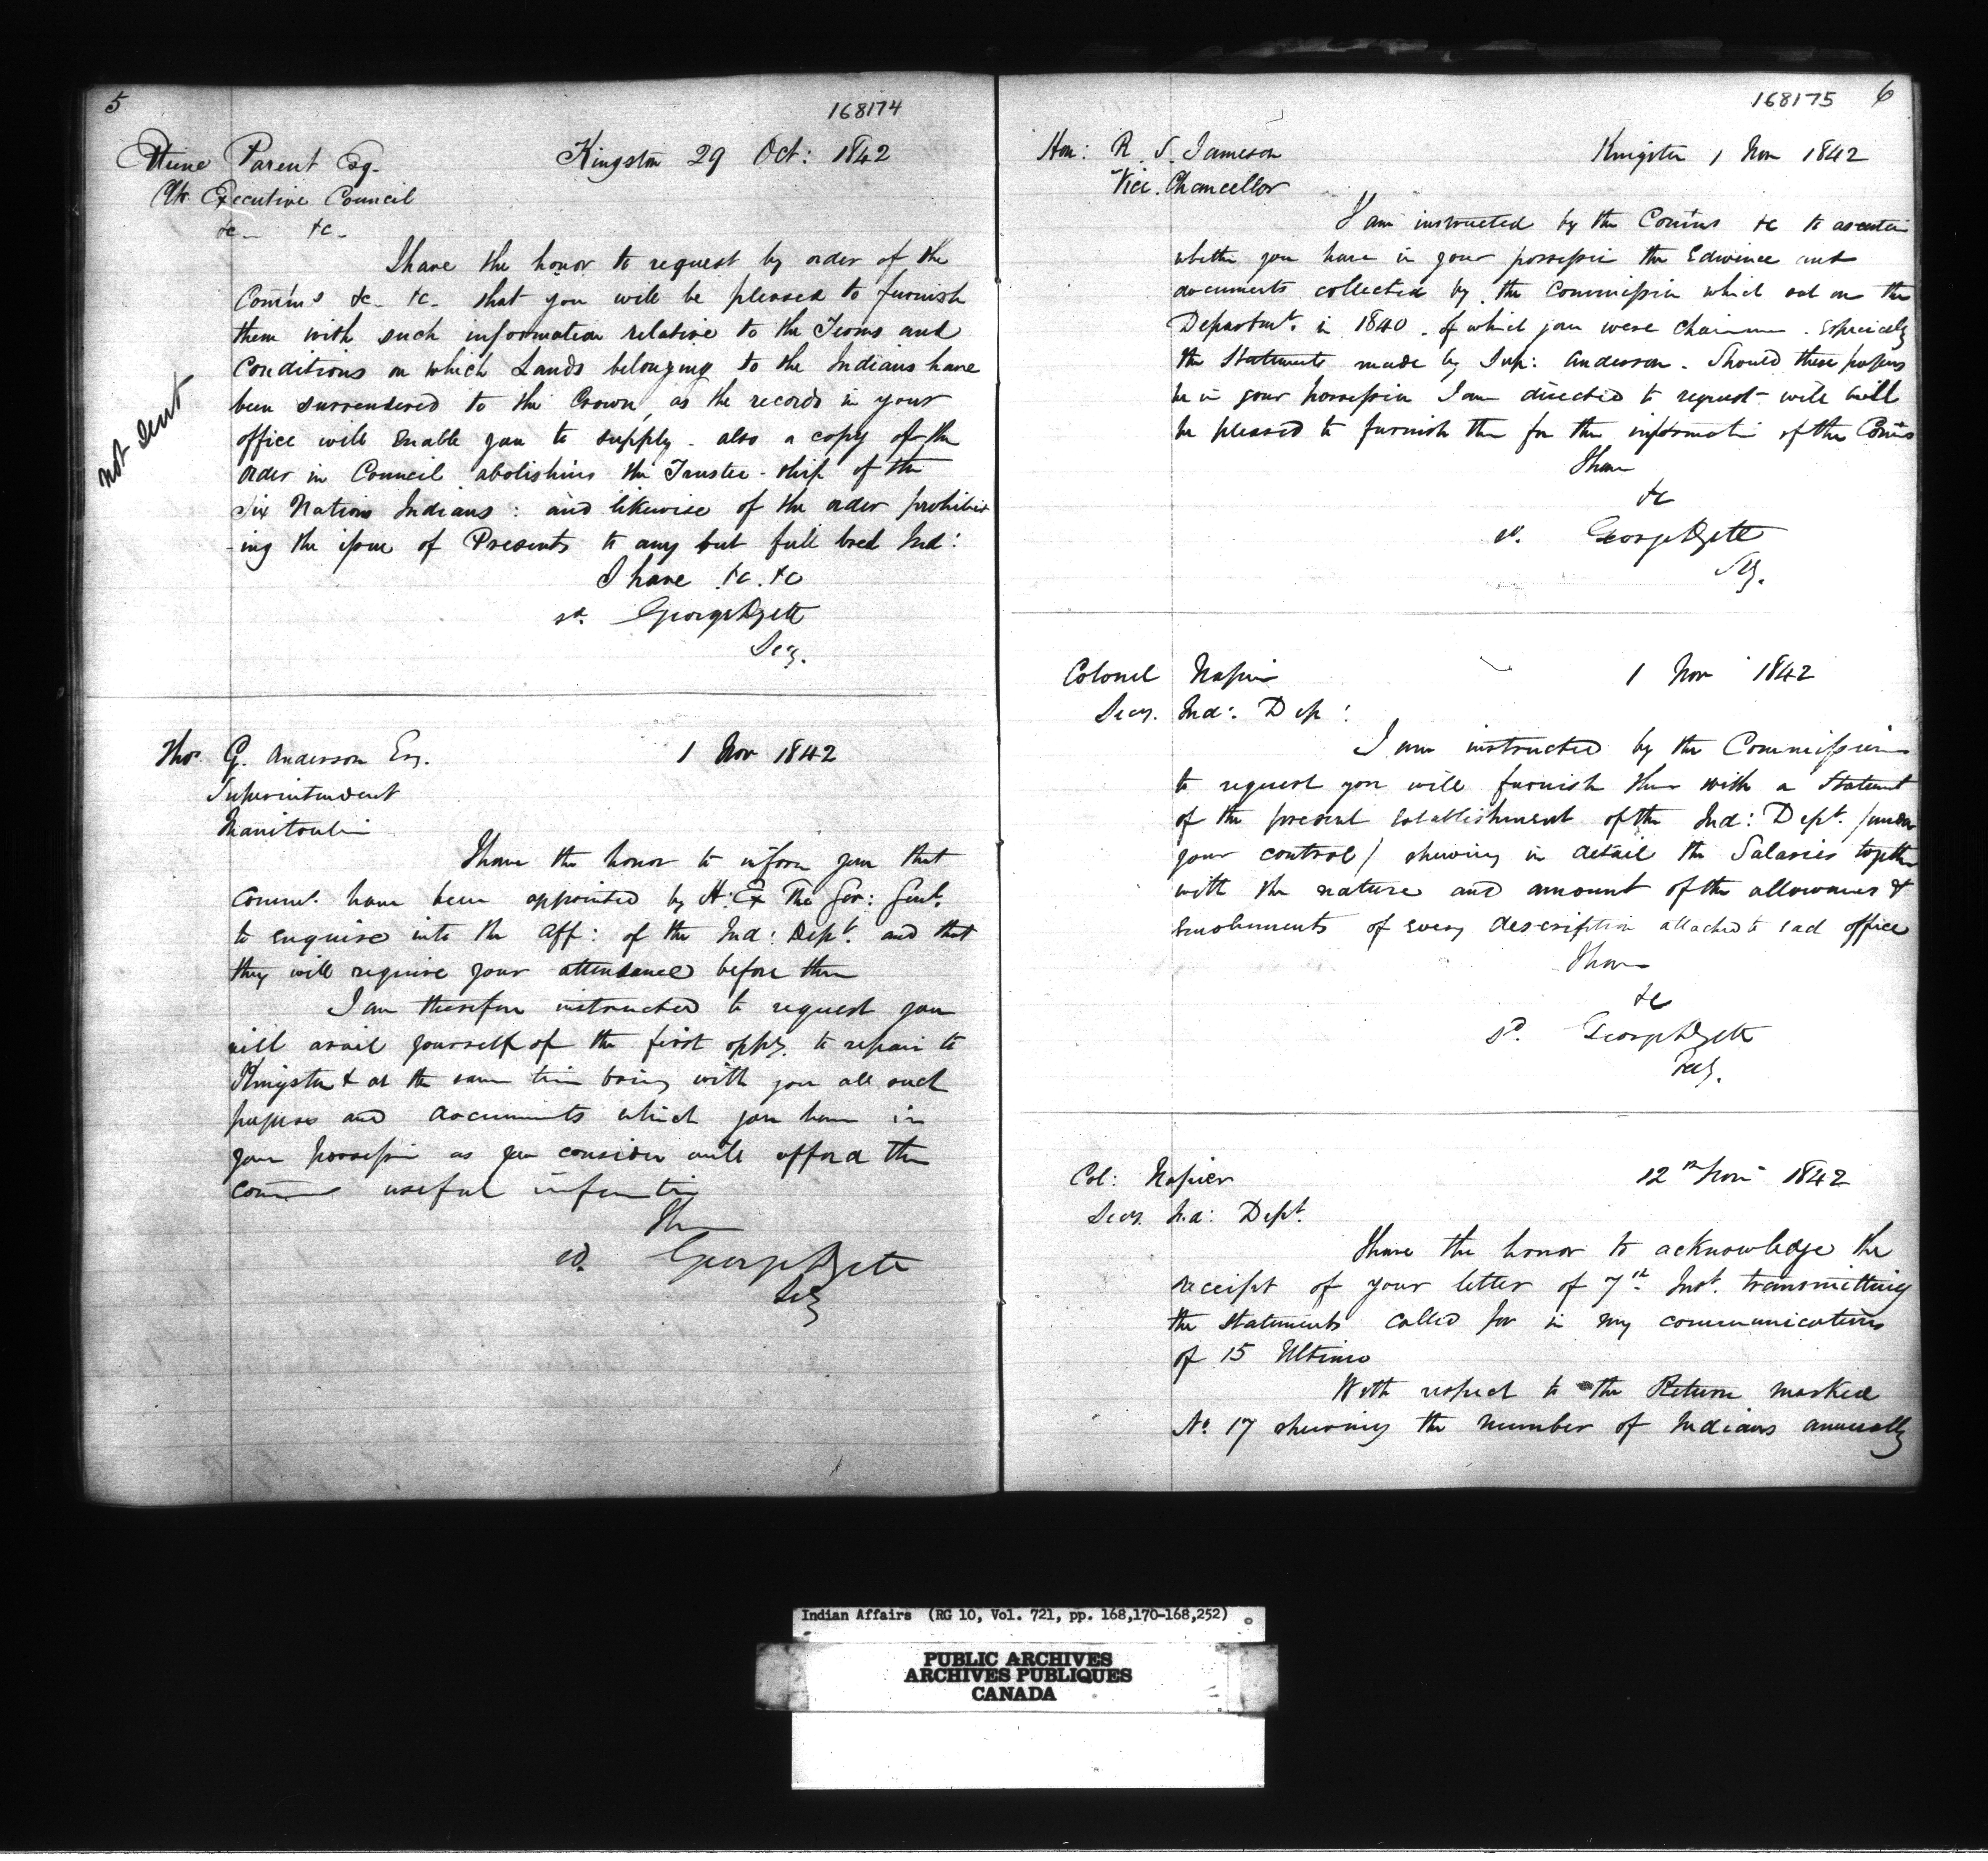 5
168174
Etiene Parent Esq.
Clk Executive Council
&c - &c -
Kingston 29 Oct: 1842
I have the honor to request by order of the
Comms &c - &c - that you will be pleased to furnish
them with such information relative to the Terms and
Conditions on which Lands belonging to the Indians have
been surrendered to the Crown, as the records in your
office will enable you to supply - also a copy of the
order in Council abolishing the Trustee-ship of the
Six Nations Indians: and likewise of the order prohibit
-ing the issue of Presents to any but full bred Ind:
I have &c. &c
sd. George
Secy.
not sent
Thos. G. Anderson Esq.
Superintendent
Manitoulin
1 Nov 1842
I have the honor to inform you that
have been appointed by H. Ex The Gov: Genl.
to enquire into the Aff: of the Ind: Dept. and that
they will require your attendance before them
I am therefore instructed to request you
will avail yourself of the first oppy. to repair to
Kingston & at the same time bring with you all such
papers and documents which you have in
your possession as you consider will afford the
useful information
I have
sd. George
Secy
168175 6
Hon: R. S. Jameson
Vice. Chancellor
Kingston 1 Nov 1842
I am instructed by the Comms &c to ascertain
whether you have in your possession the Edvince and
documents collected by the Commission which sat on the
Departmt. in 1840. of which you were chairman. especially
the Statements made by Sup: Anderson. Should these papers
be in your possession I am directed to request will will
be pleased to furnish them for the information of the Comms
I have
&c
sd. George
Secy.
Colonel Napier
Secy. Ind: Dep:
1 Nov 1842
I am instructed by the Commissioners
to request you will furnish them with a Statement
of the present establishment of the Ind: Dept. /under
your control/ shewing in detail the Salaries together
with the nature and amount of the allowances &
Emoluments of every description attached to each office
I have
&c
sd. George
Secy.
Col: Napier
Secy. Ind: Dept.
12th Nov 1842
I have the honor to acknowledge the
receipt of your letter of 7th Inst. transmitting
the Statements called for in my communications
of 15 Ultimo
With respect to the Return marked
No. 17 shewing the number of Indians annually
Indian Affairs (RG 10, Vol. 721, pp. 168,170-168,252)
PUBLIC ARCHIVES
ARCHIVES PUBLIQUES
CANADA